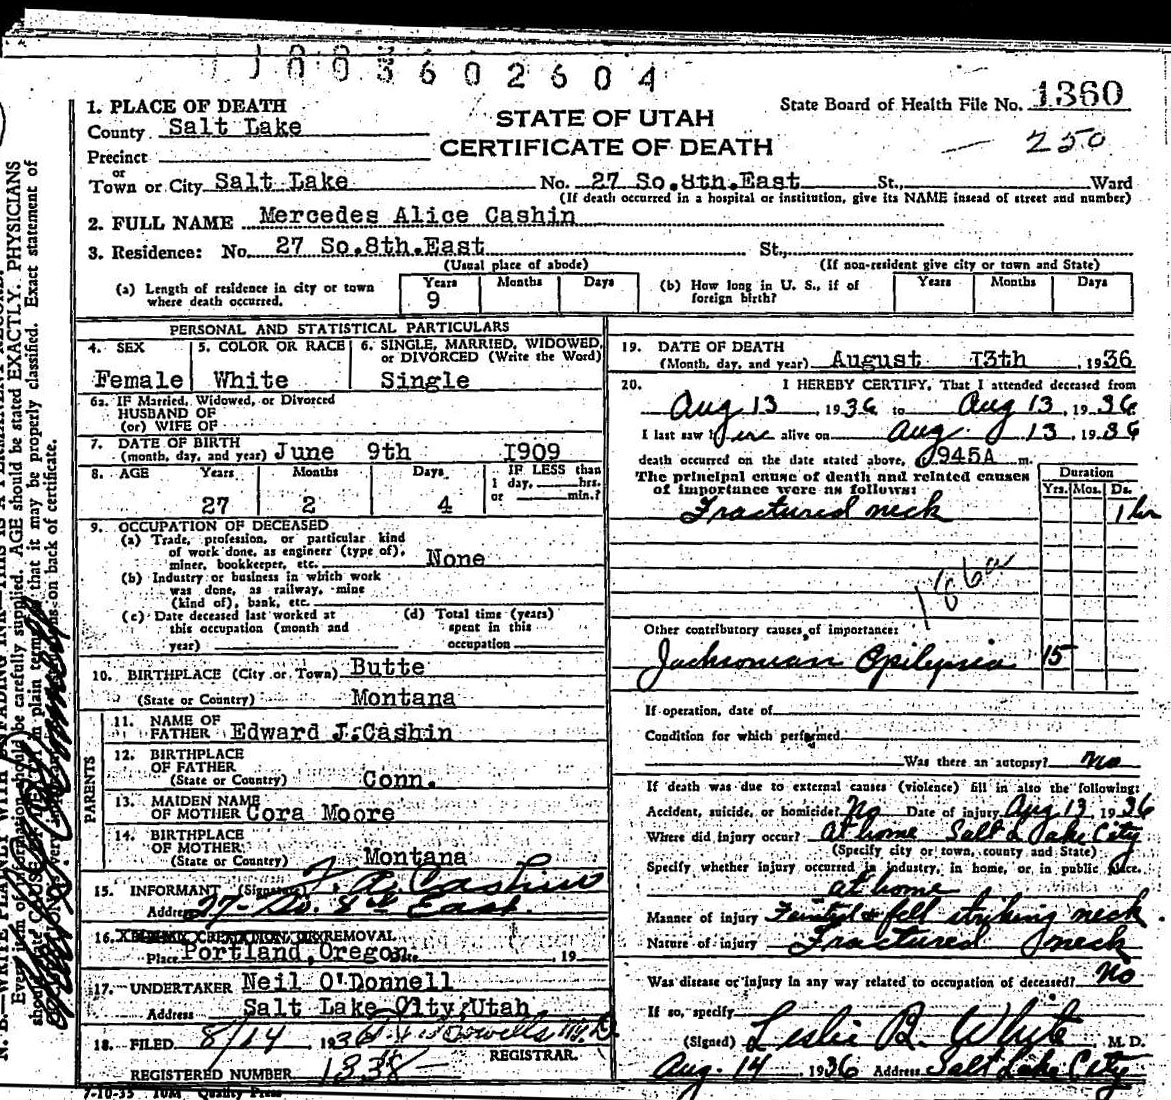 1003602604
1. PLACE OF DEATH
County Salt Lake
Precinct
or
Town or City Salt Lake No. 27 So.8th.East St., Ward
(If death occurred in a hospital or institution, give its NAME insead of street and number)
STATE OF UTAH
CERTIFICATE OF DEATH
State Board of Health File No. 1360
250
2. FULL NAME Mercedes Alice Cashin
3. Residence: No. 27 So.8th.East St.,
(Usual place of abode) (If non-resident give city or town and State)
(a) Length of residence in city or town where death occurred. Years 9 Months Days
(b) How long in U. S., if of foreign birth? Years Months Days
PERSONAL AND STATISTICAL PARTICULARS
4. SEX Female
5. COLOR OR RACE White
6. SINGLE, MARRIED, WIDOWED, or DIVORCED (Write the Word) Single
6a. IF Married, Widowed, or Divorced
HUSBAND OF
(or) WIFE OF
7. DATE OF BIRTH
(month, day, and year) June 9th I909
8. AGE Years Months Days IF LESS than
1 day, hrs.
or min.?
27 2 4
9. OCCUPATION OF DECEASED
(a) Trade, profession, or particular kind
of work done, as engineer (type of),
miner, bookkeeper, etc. None
(b) Industry or business in which work
was done, as railway, mine
(kind of), bank, etc.
(c) Date deceased last worked at
this occupation (month and
year)
(d) Total time (years)
spent in this
occupation
10. BIRTHPLACE (City or Town) Butte
(State or Country) Montana
PARENTS
11. NAME OF
FATHER Edward J.Cashin
12. BIRTHPLACE
OF FATHER
(State or Country) Conn.
13. MAIDEN NAME
OF MOTHER Cora Moore
14. BIRTHPLACE
OF MOTHER
(State or Country) Montana
15. INFORMANT (Signature) Cashin
Address 27- So. 8th East.
16. REMOVAL
Place Portland,Oregon. 19
17. UNDERTAKER Neil O'Donnell
Address Salt Lake City,Utah
18. FILED 8/14, 1936
REGISTRAR.
REGISTERED NUMBER 1338
7-10-35 10M Quality Press
19. DATE OF DEATH
(Month, day, and year) August I3th , 1936
20. I HEREBY CERTIFY, That I attended deceased from
Aug 13, 1936 to Aug 13, 1936
I last saw her alive on Aug. 13, 1936
death occurred on the date stated above, 945A m.
The principal cause of death and related causes
of importance were as follows:
Duration
Yrs. Mos. Ds.
Fractured neck 1 hr
186a
Other contributory causes of importance:
Jacksonian Epilepsia 15
If operation, date of
Condition for which performed
Was there an autopsy? no
If death was due to external causes (violence) fill in also the following:
Accident, suicide, or homicide? No Date of injury Aug 13, 1936
Where did injury occur? At home Salt Lake City
(Specify city or town, county and State)
Specify whether injury occurred in industry, in home, or in public place.
at home
Manner of injury Fainted & fell striking neck
Nature of injury Fractured neck
Was disease or injury in any way related to occupation of deceased? No
If so, specify
(Signed) Leslie B. White, M. D.
Aug. 14, 1936 Address Salt Lake City
N. B.—WRITE PLAINLY WITH UNFADING INK—THIS IS A PERMANENT RECORD.